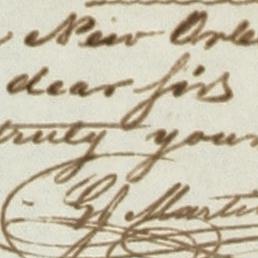 New Orle
dear sir
truly your
Martin